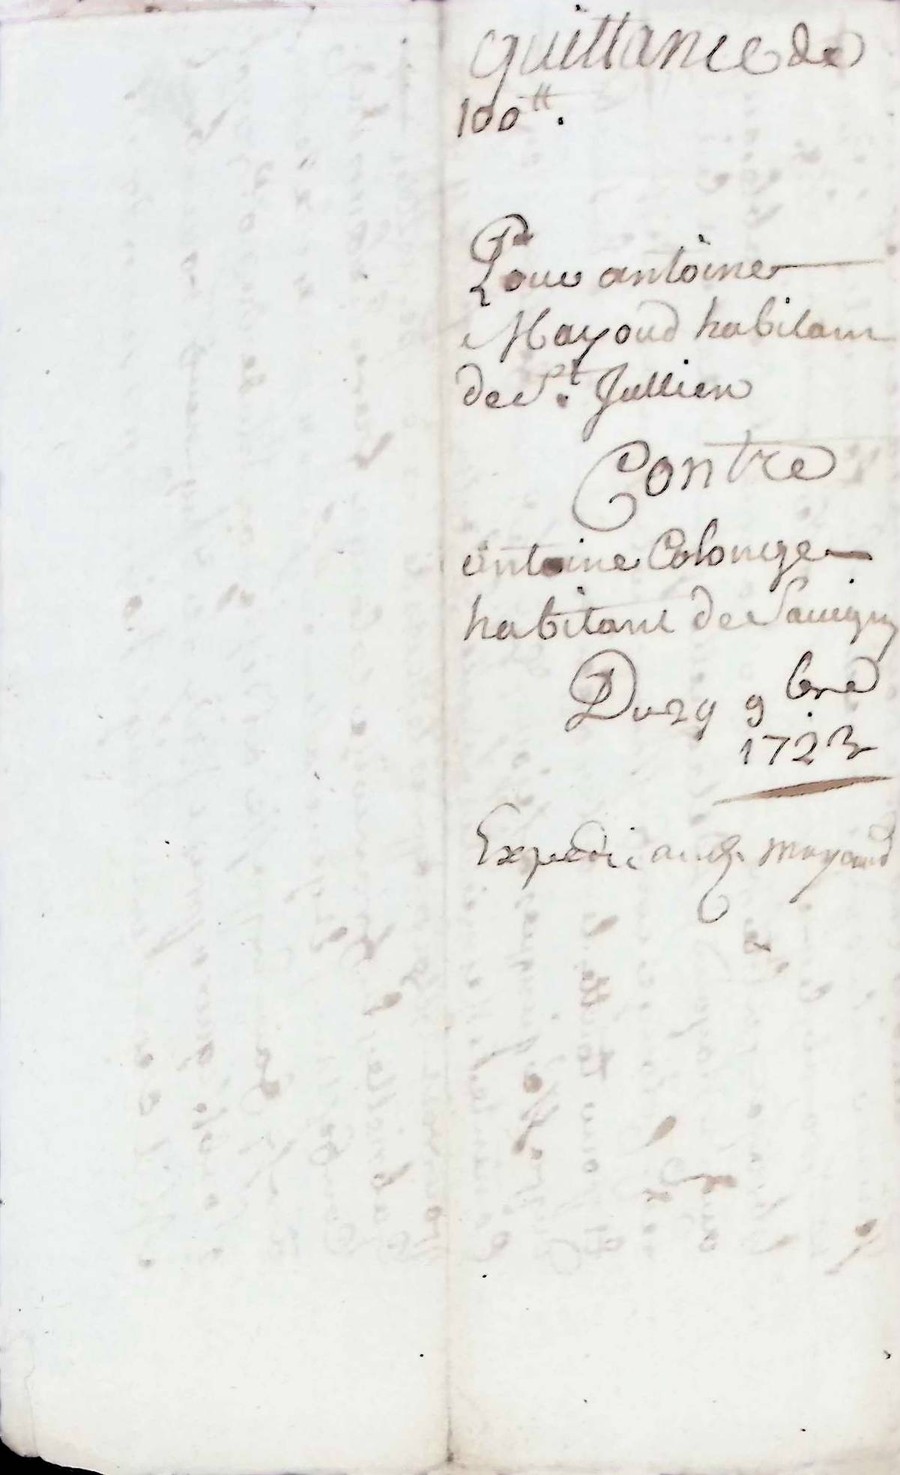 quittance de
100tt.
Pour antoine
Mayoud habitant
de St. Jullien
Contre
antoine Colonge
habitant de Savigny
Du 29 9bre
1723
Expedié aud. Mayoud